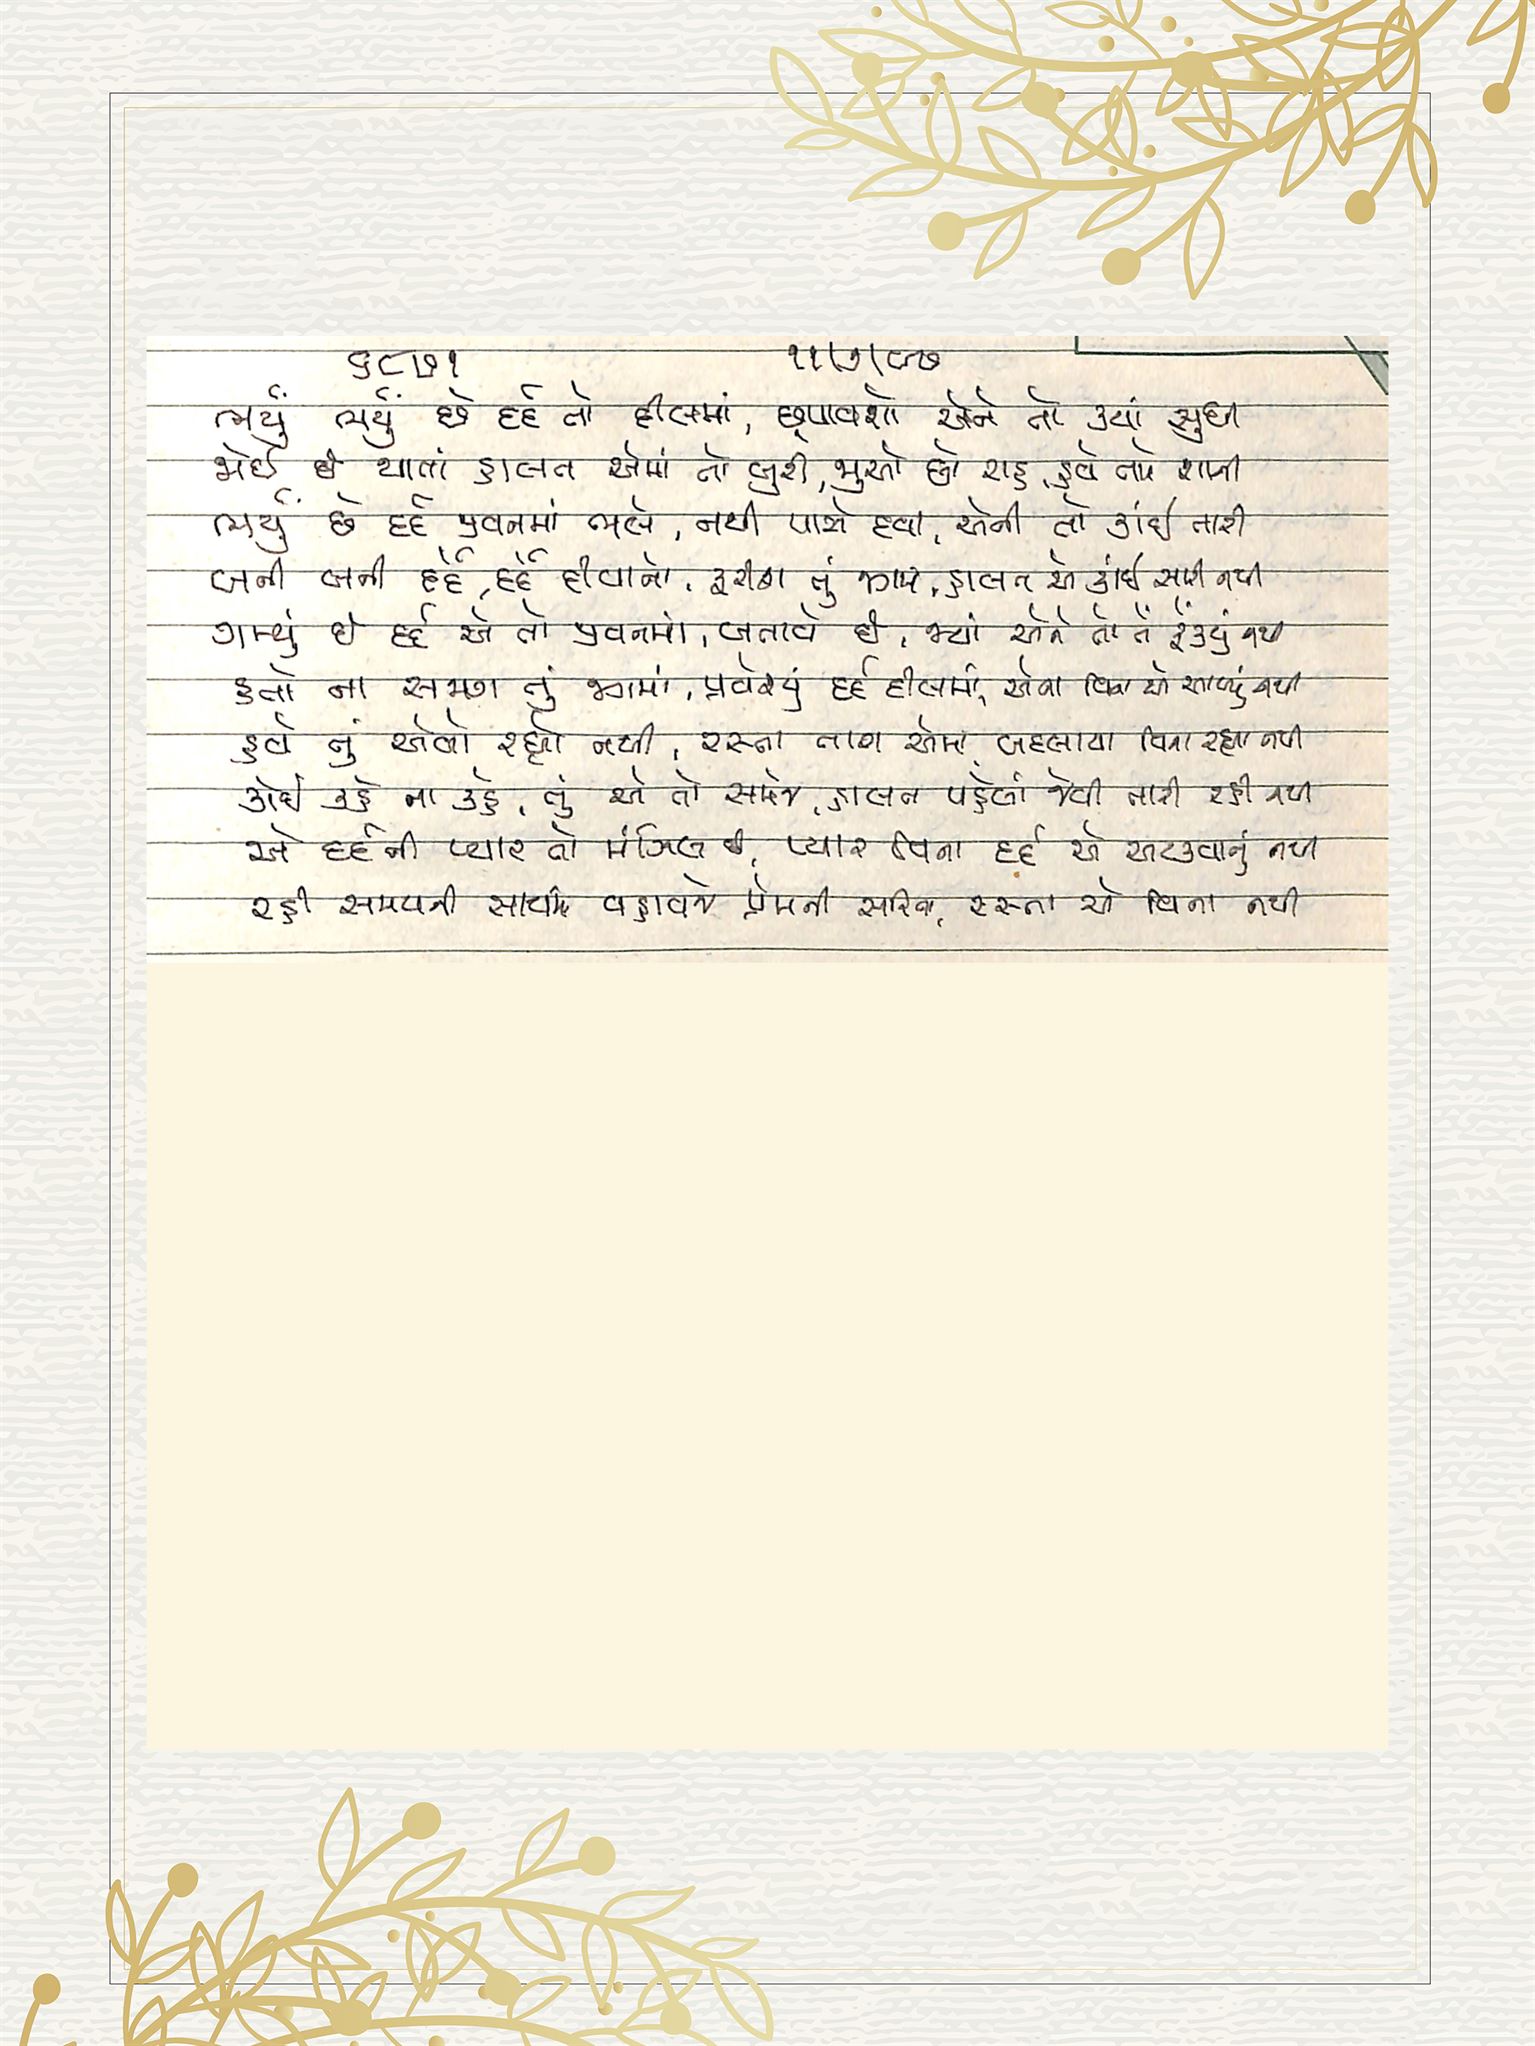 ૬૮૭૧ ૧૧/૭/૯૭
ભર્યું ભર્યું છે દર્દ તો દીલમાં, છૂપાવશો એને તો ક્યાં સુધી
જોઈ છે થાતાં હાલત એમાં તો બુરી, જુઓ છો રાહ, હવે તમે શાની
ભર્યું છે દર્દ જીવનમાં ભલે, નથી પાસે દવા, એની તો કાંઈ તારી
બની બની દર્દે, દર્દે દીવાનો, ફરીશ તું જગમાં, હાલત એ કાંઈ સારી નથી
ગમ્યું છે દર્દ એ તો જીવનમાં, બતાવે છે, જ્યાં એને તો તેં ફેંક્યું નથી
હતો ના સમજી તું જગમાં, પ્રવેશ્યું દર્દ દીલમાં, એના વિના એ આવ્યું નથી
હવે તું એવો રહ્યો નથી, રસ્તા તારા એમાં બદલાયા વિના રહ્યા નથી
કોઈ કહે ના કહે, તું એ તો સમજ, હાલત પહેલાં જેવી તારી રહી નથી
એ દર્દની પ્યાર તો મંઝિલ છે, પ્યાર વિના દર્દ એ અટકવાનું નથી
રહી સમયની સાથે વહાવજે પ્રેમની સરિતા, રસ્તા એ વિના નથી